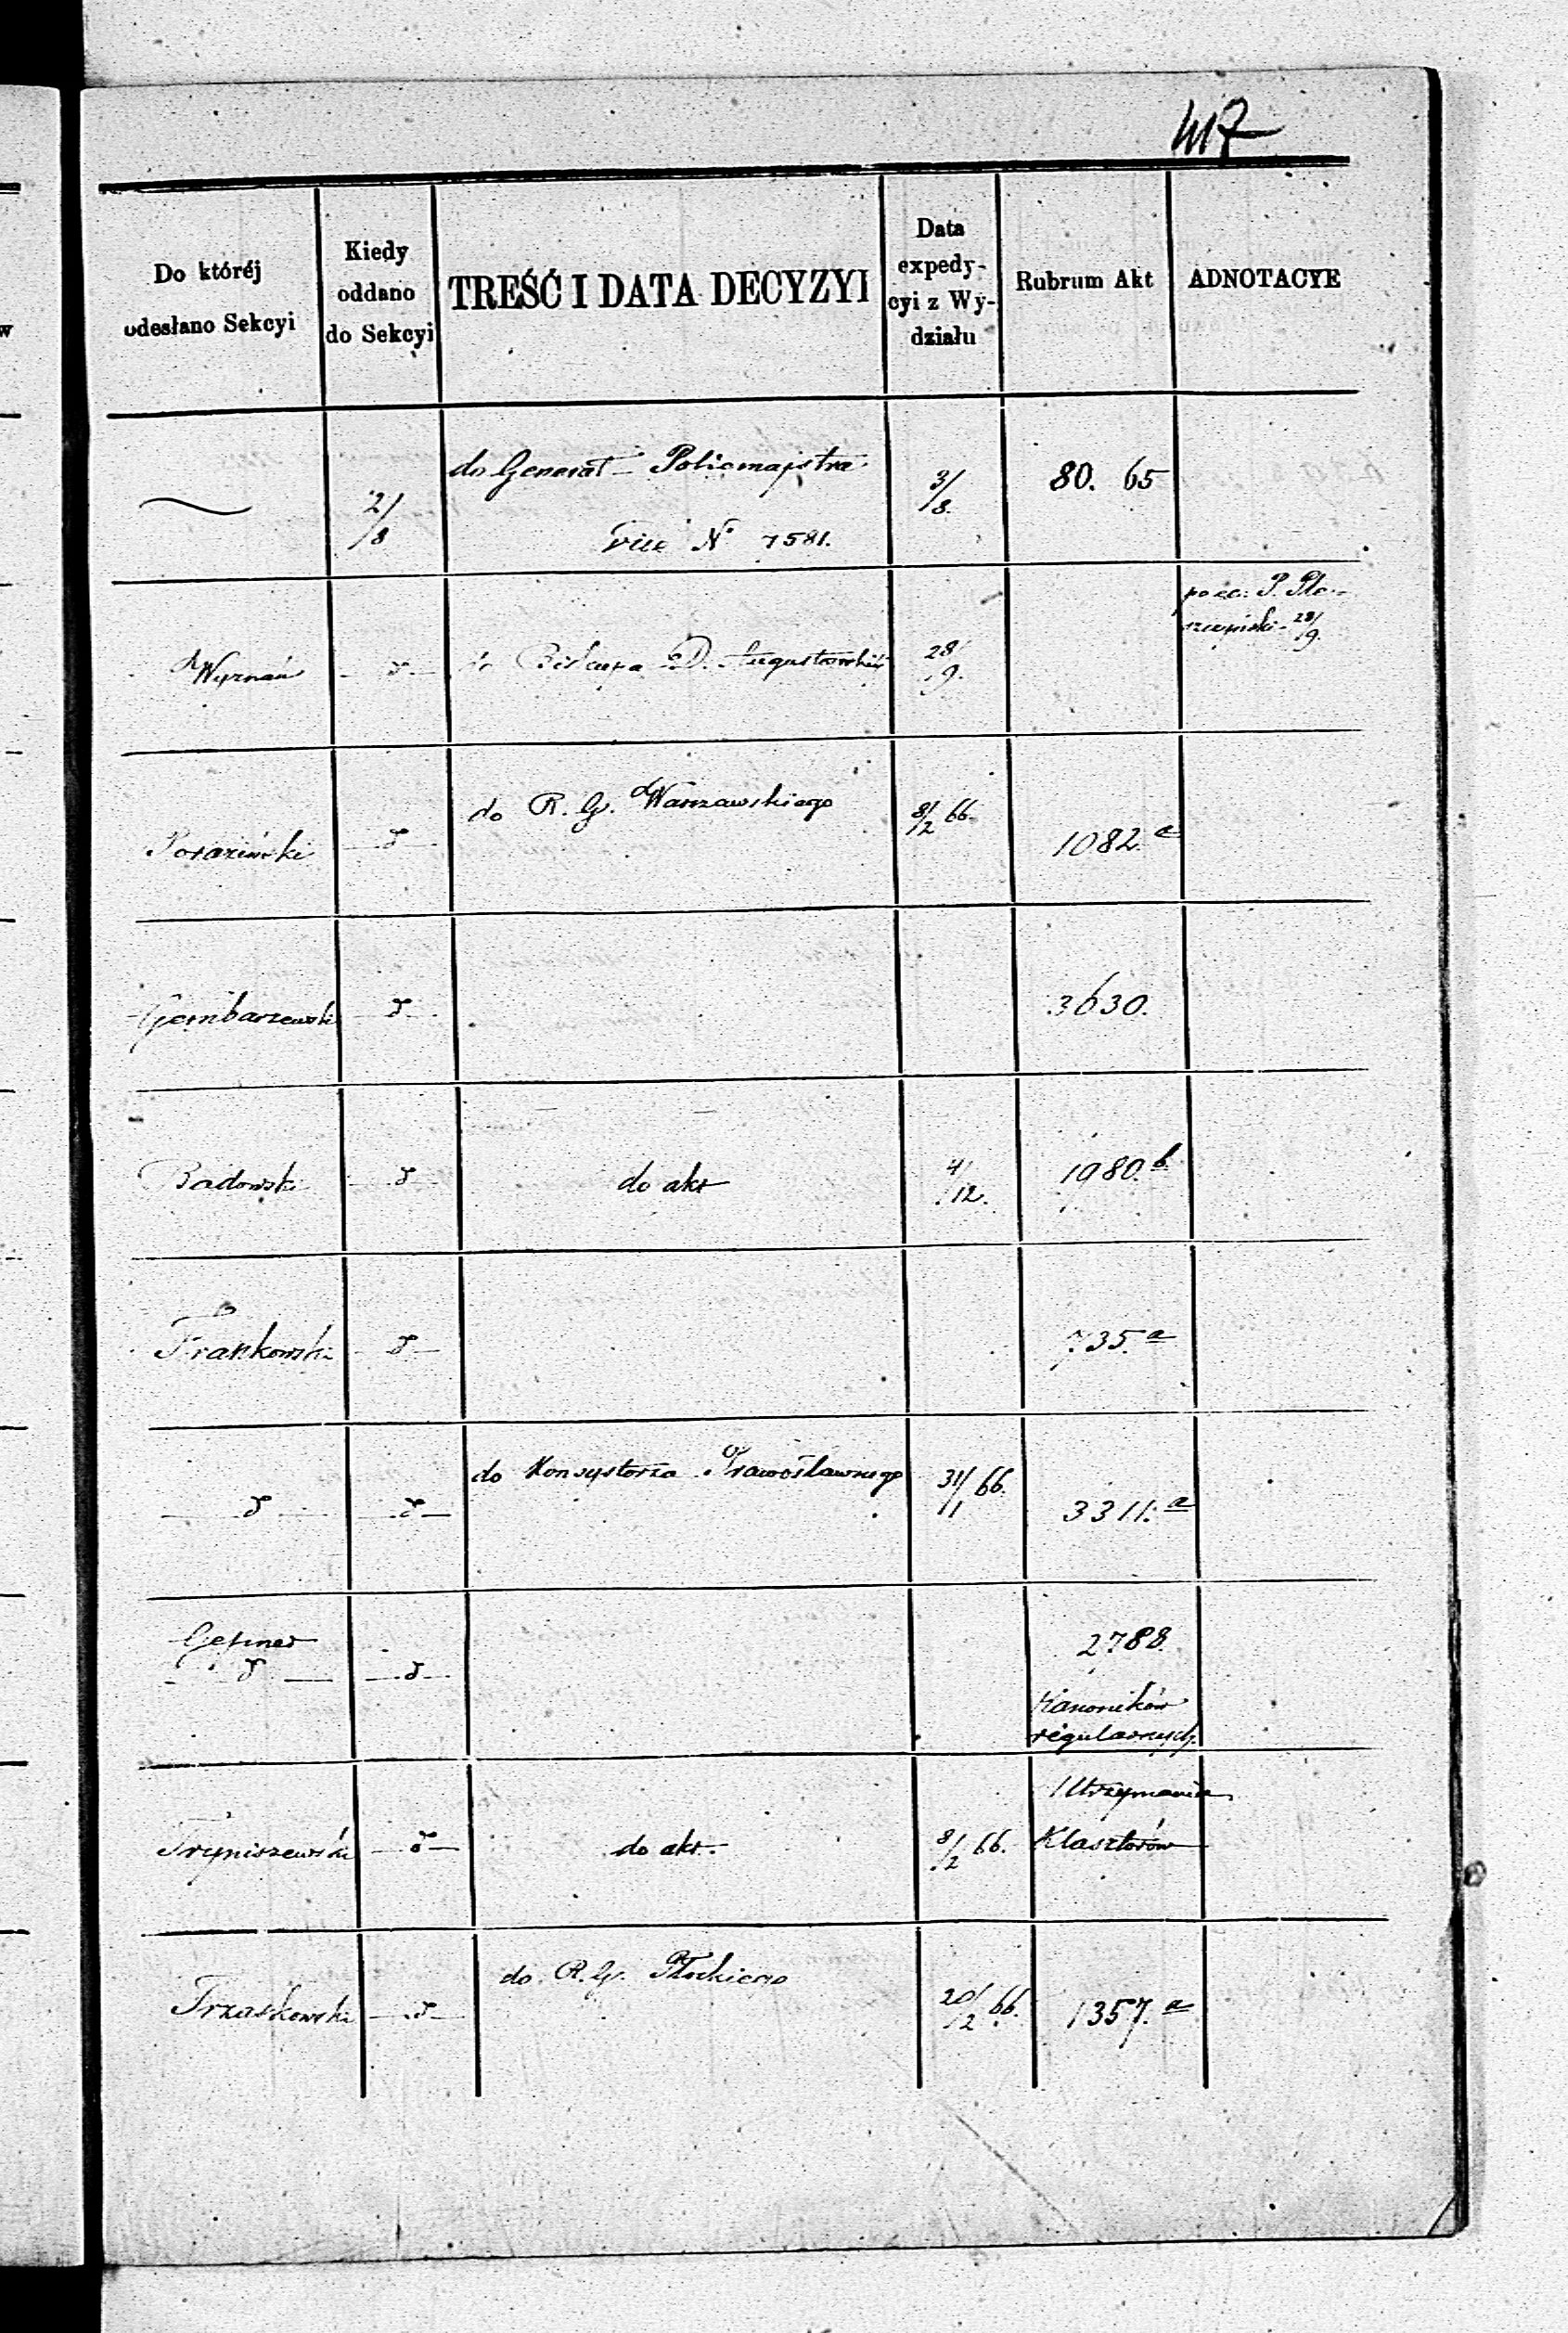 417
Do któréj
odesłano Sekcyi
Kiedy
oddano
do Sekcyi
TREŚĆ I DATA DECYZYI
Data
expedy-
cyi z Wy-
działu
Rubrum Akt
ADNOTACYE
2/8
do Generał Policmajstra
vice N° 7581.
3/8.
80. 65
Wyznań
d
do Biskupa D. Augustowskiej
28/9.
28/9.
d
do R. G. Warszawskiego
8/2 66.
1082.a
Gembarzewski
d
3630.
Badowski
d
do akt
4/12.
1980.b
Frankowski
d
735.a
d
d
do Konsystorza Prawosławnego
31/1 66.
3311.a
d
d
2788.
Kanoników
regularnych
Tryniszewski
d
do akt.
8/2 66.
Utrzymania
Klasztorów
Trzaskowski
d
do R. G. Płockiego
20/2 66.
1357.a